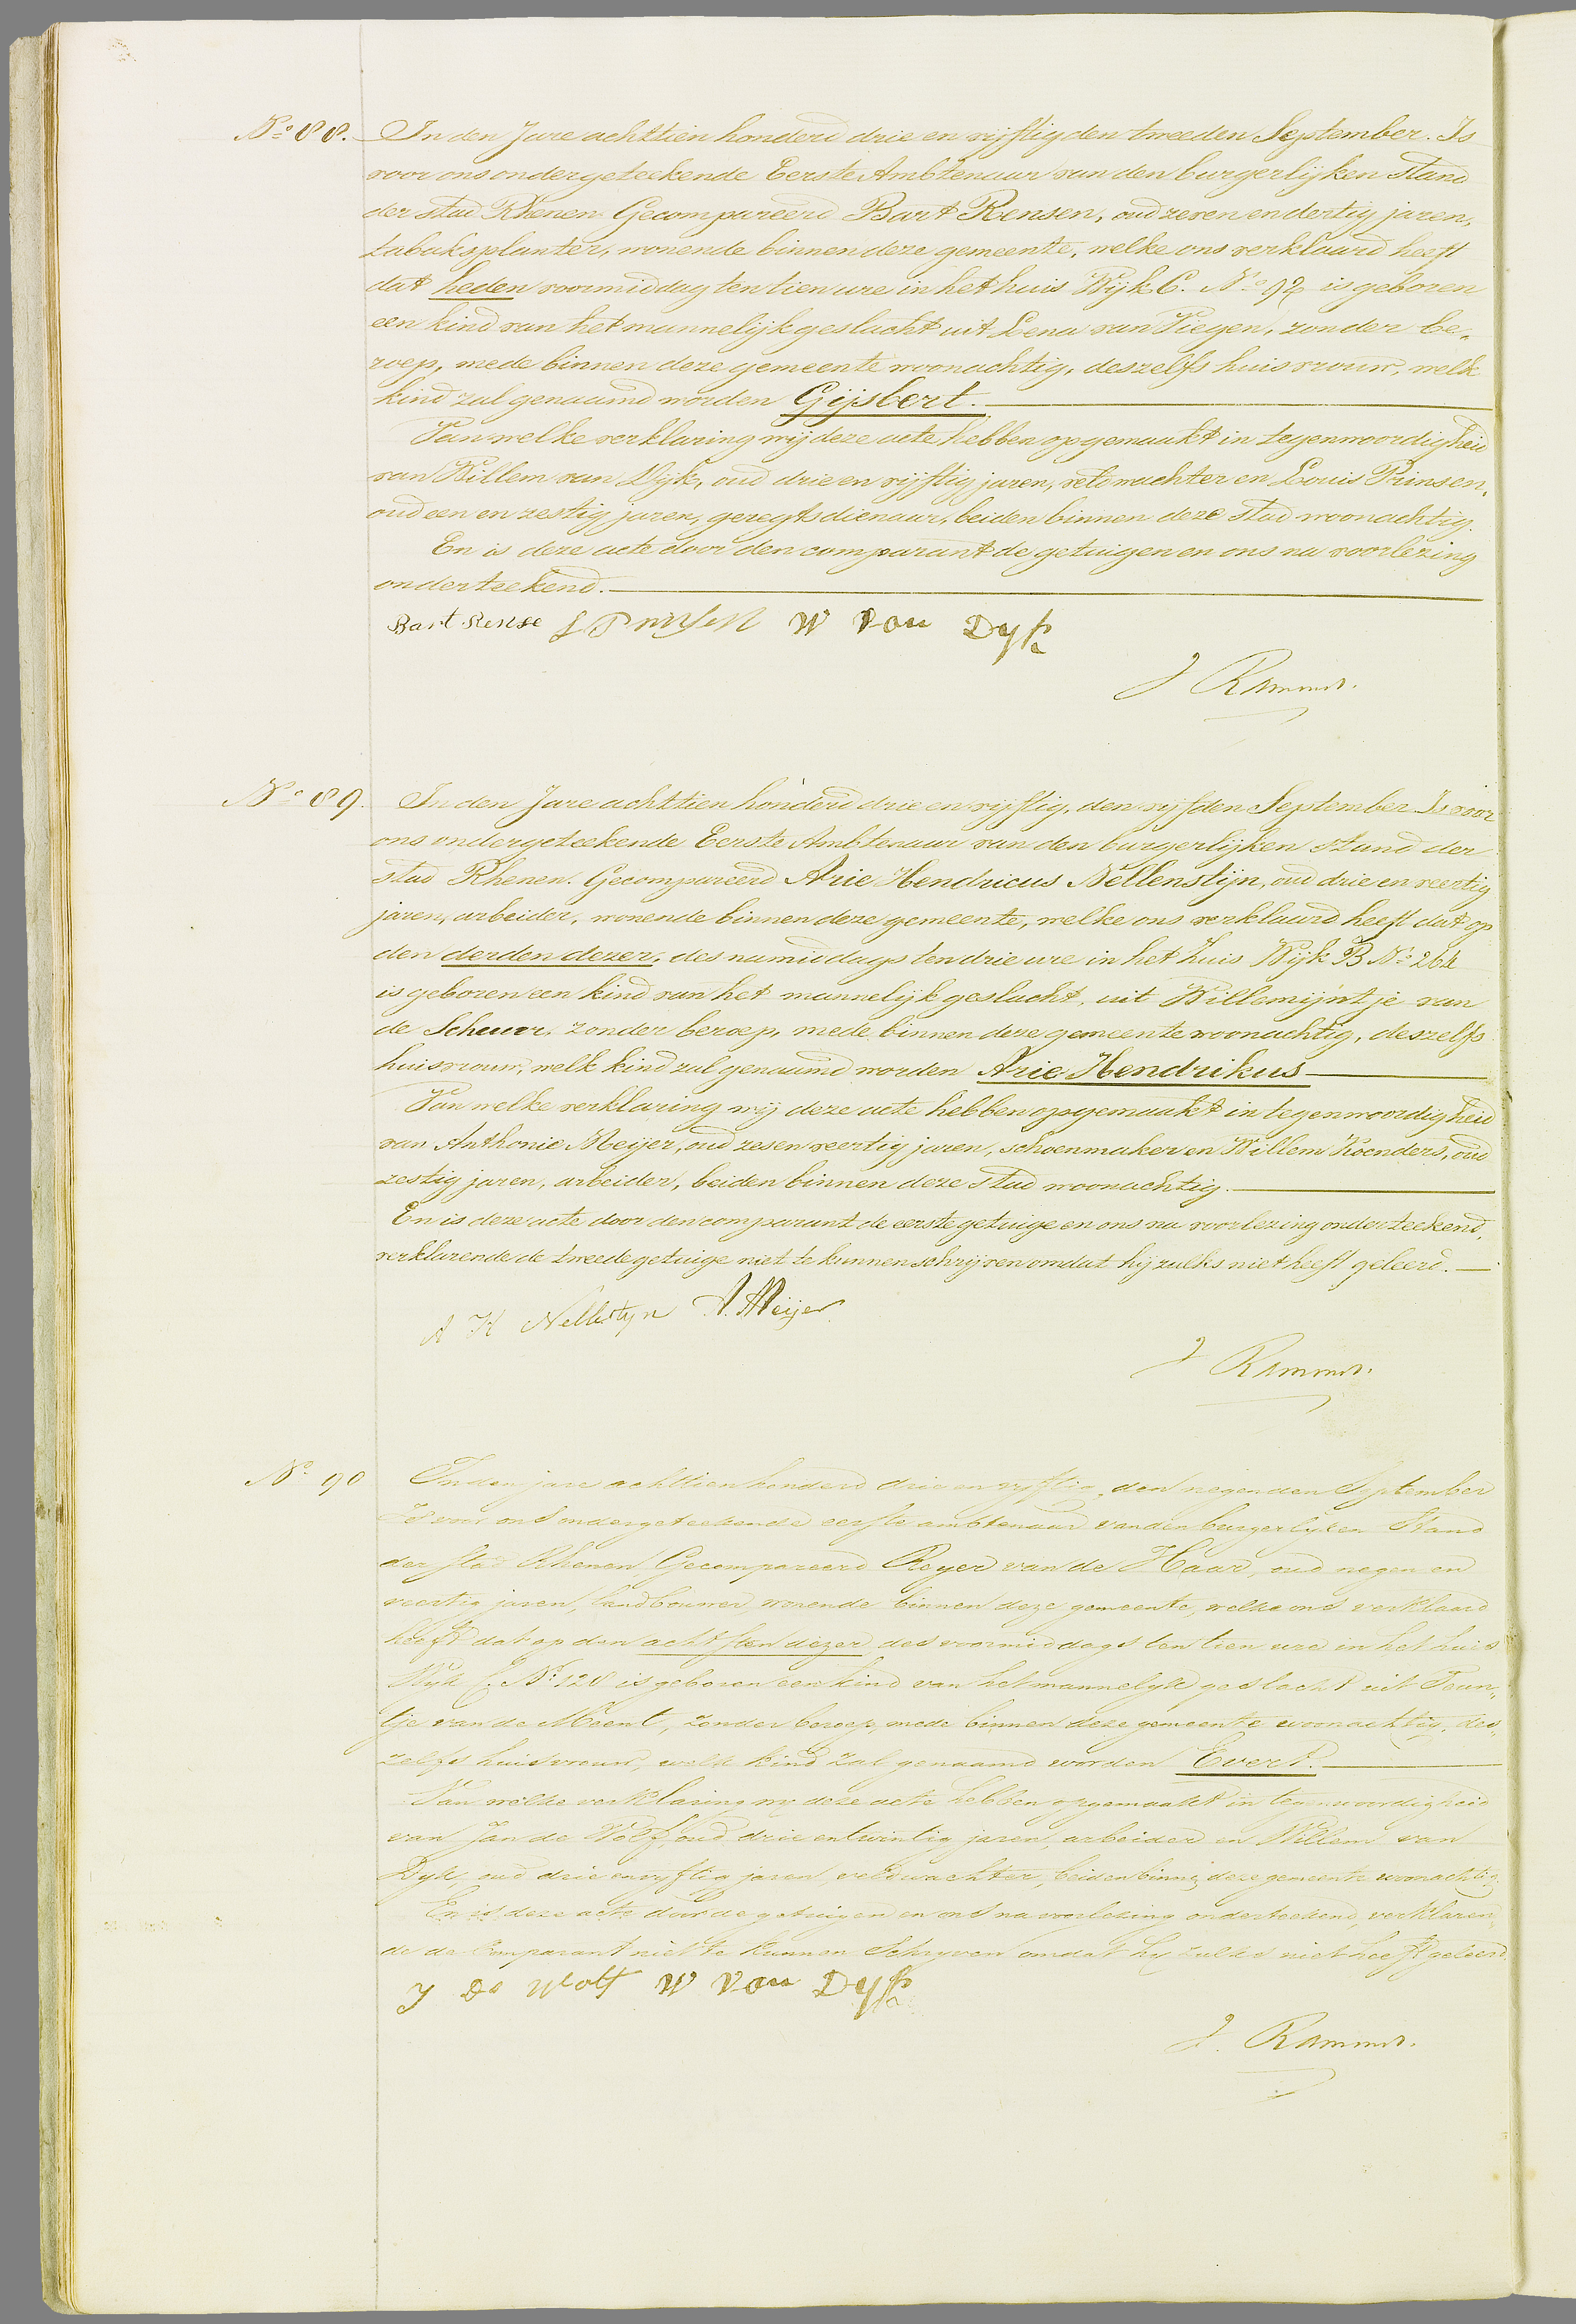 No 88. In den Jare achttien honderd drie en vijftig den tweeden September. Is
voor ons ondergeteekende Eerste Ambtenaar van den burgerlijken stand
der stad Rhenen Gecompareerd Bart Rensen, oud zeven en dertig jaren,
tabaksplanter, wonende binnen deze gemeente, welke ons verklaard heeft
dat heden voormiddag ten tien ure in het huis Wijk C. No 92 is geboren
een kind van het mannelijk geslacht uit Lena van Tiegen, zonder be-
roep, mede binnen deze gemeente woonachtig, deszelfs huisvrouw, welk
kind zal genaamd worden Gijsbert.
Van welke verklaring wij deze acte hebben opgemaakt in tegenwoordigheid
van Willem van Dijk, oud drie en vijftig jaren, veldwachter en Louis Prinsen,
oud een en zestig jaren, geregtsdienaar, beiden binnen deze stad woonachtig.
En is deze acte door den comparant de getuigen en ons na voorlezing
onderteekend.
Bart Rense L Prinsen W van Dyk
J Rammes.
No 89. In den Jare achttien honderd drie en vijftig, den vijfden September. Is voor
ons ondergeteekende Eerste Ambtenaar van den burgerlijken stand der
stad Rhenen. Gecompareerd Arie Hendricus Nellenstijn, oud drie en veertig
jaren, arbeider, wonende binnen deze gemeente, welke ons verklaard heeft dat op
den derden dezer, des namiddags ten drie ure in het huis Wijk B No 264
is geboren een kind van het mannelijk geslacht, uit Willemijntje van
de Scheur, zonder beroep, mede binnen deze gemeente woonachtig, deszelfs
huisvrouw, welk kind zal genaamd worden Arie Hendrikus
Van welke verklaring wij deze acte hebben opgemaakt in tegenwoordigheid
van Anthonie Meijer, oud zes en veertig jaren, schoenmaker en Willem Koenders, oud
zestig jaren, arbeider, beiden binnen deze stad woonachtig.
En is deze acte door den comparant de eerste getuige en ons na voorlezing onderteekend,
verklarende de tweede getuige niet te kunnen schrijven omdat hij zulks niet heeft geleerd.
A H Nellestyn A. Meijer
J Rammes.
No 90 In den jare achttien honderd drie en vyftig, den negenden September
Is voor ons ondergeteekende eerste ambtenaar van den burgerlyken Stand
der stad Rhenen, Gecompareerd Reyer van de Haar, oud negen en
veertig jaren, landbouwer wonende binnen deze gemeente, welke ons verklaard
heeft dat op den achtsten dezer des voormiddags ten tien ure in het huis
Wyk C. No 128 is geboren een kind van het mannelyk geslacht uit Teun-
tje van de Meent, zonder beroep, mede binnen deze gemeente woonachtig, des-
zelfs huisvrouw, welk kind zal genaamd worden Evert.
Van welke verklaring wy deze acte hebben opgemaakt in tegenwoordigheid
van Jan de Wolf, oud drie en twintig jaren, arbeider en Willem van
Dyk, oud drie en vyftig jaren veldwachter, beiden binnen deze gemeente woonachtig
En is deze acte door de getuigen en ons na voorlezing onderteekend, verklaren-
de de Comparant niet te kunnen Schryven omdat hy zulks niet heeft geleerd.
J de Wolf W van Dyk
J. Rammes.